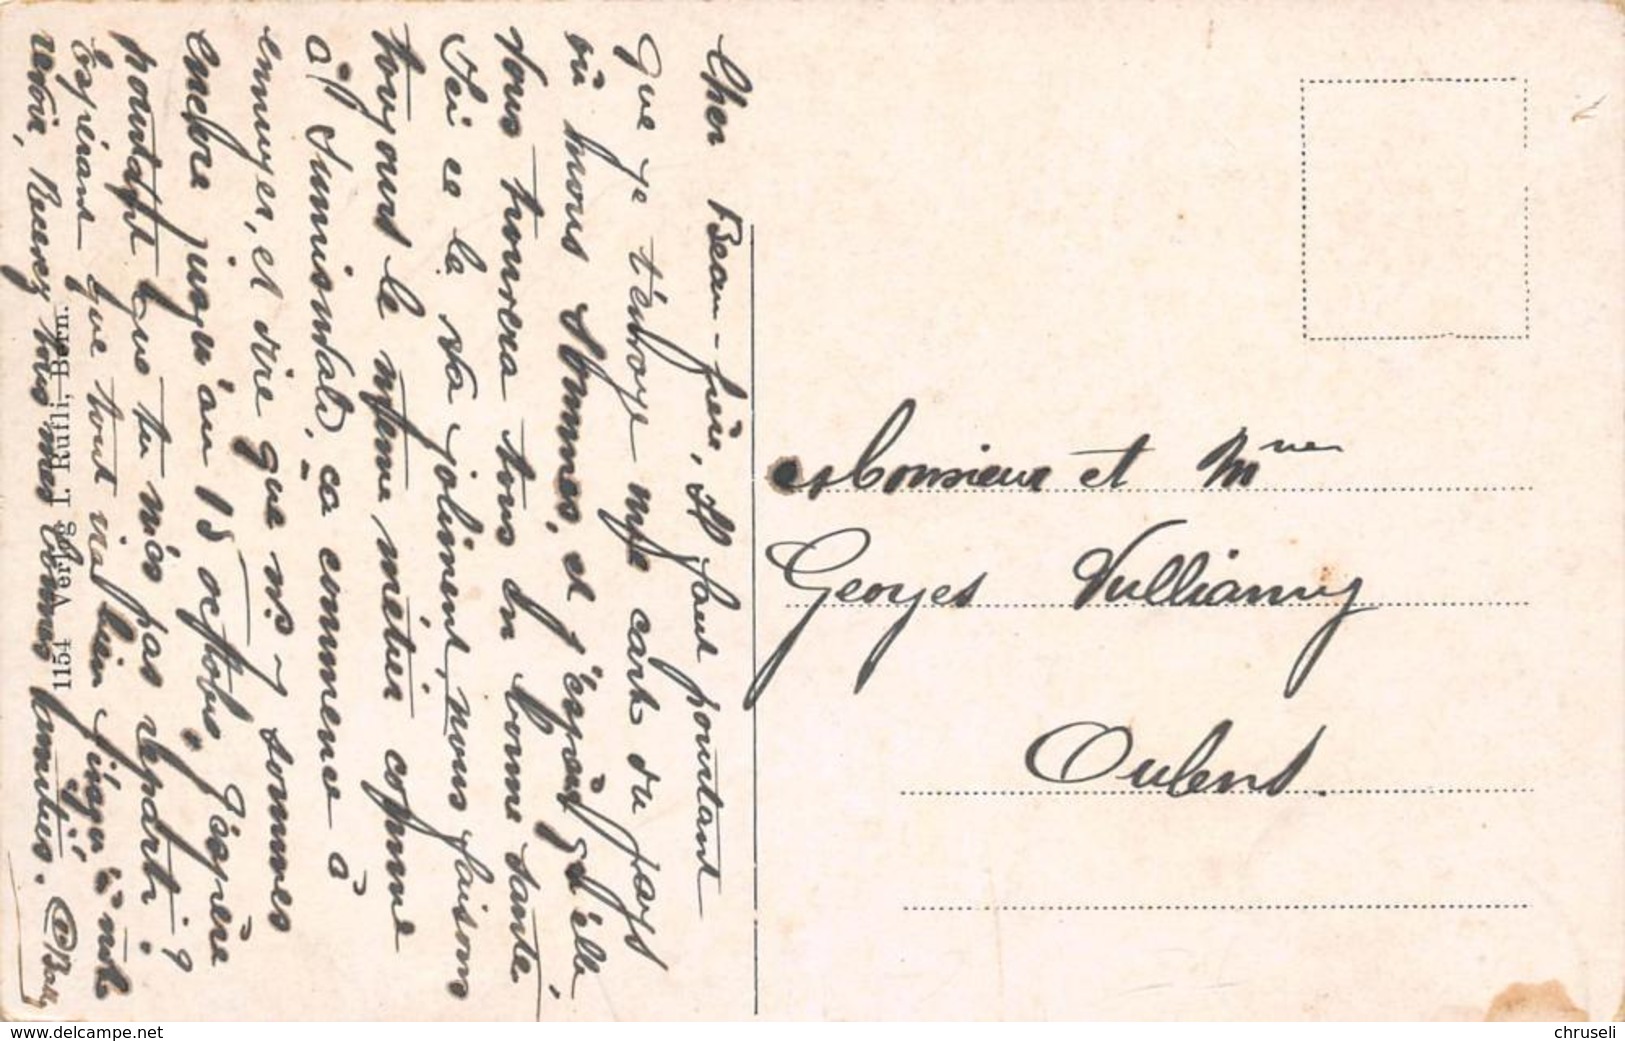 Cher Beau-frère, Il faut pourtant
que je t'envoye une carte du pays
où nous sommes, et j'espère qu'elle
vous trouvera tous en bonne santé
Ici ce la va joliment, nous faisons
toujours le même métier comme
à Sumiswald, ça commence à
ennuyer, et dire que ns. sommes
encore jusqu'au 15 octobre, J'espère
pourtant que tu n'es pas reparti ?
Espérant que tout va bien jusqu'à notre
revoir, Recevez tous mes bonnes amitiés.
1154 Verlag I. Rufli, Bern.
Monsieur et Mme
Georges Vulliamy
Oulens.
www.delcampe.net
chruseli